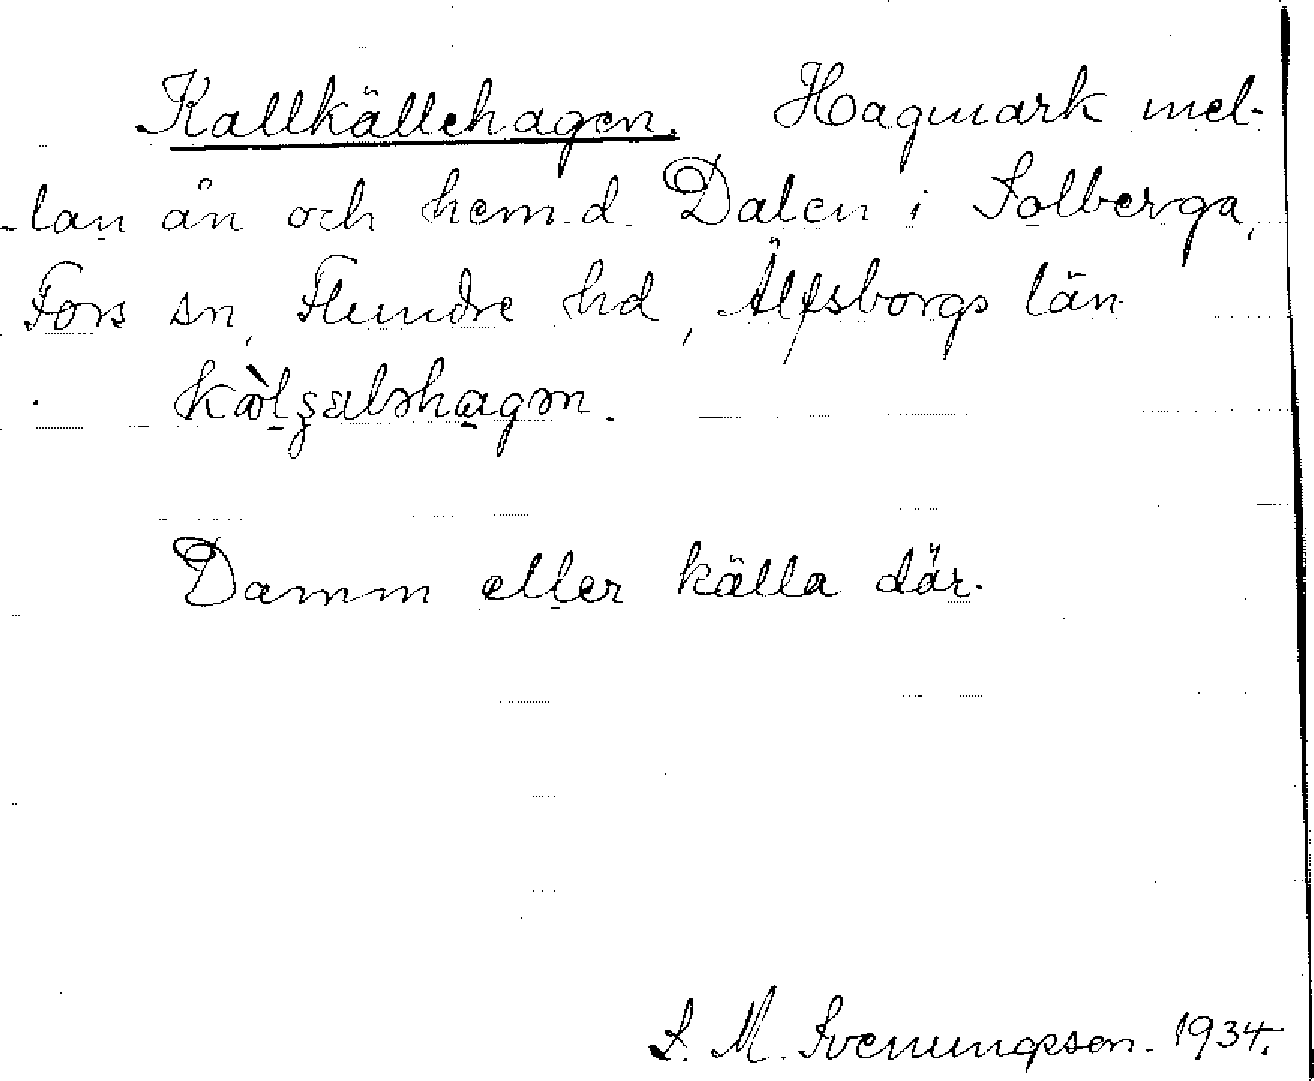 Kallkällehagen. Hagmark mel-
lan ån och hem.d. Dalen i Solberga,
Fors sn, Flundre hd, Älfsborgs län

Damm eller källa där.
S. M. Svenungsson. 1934.